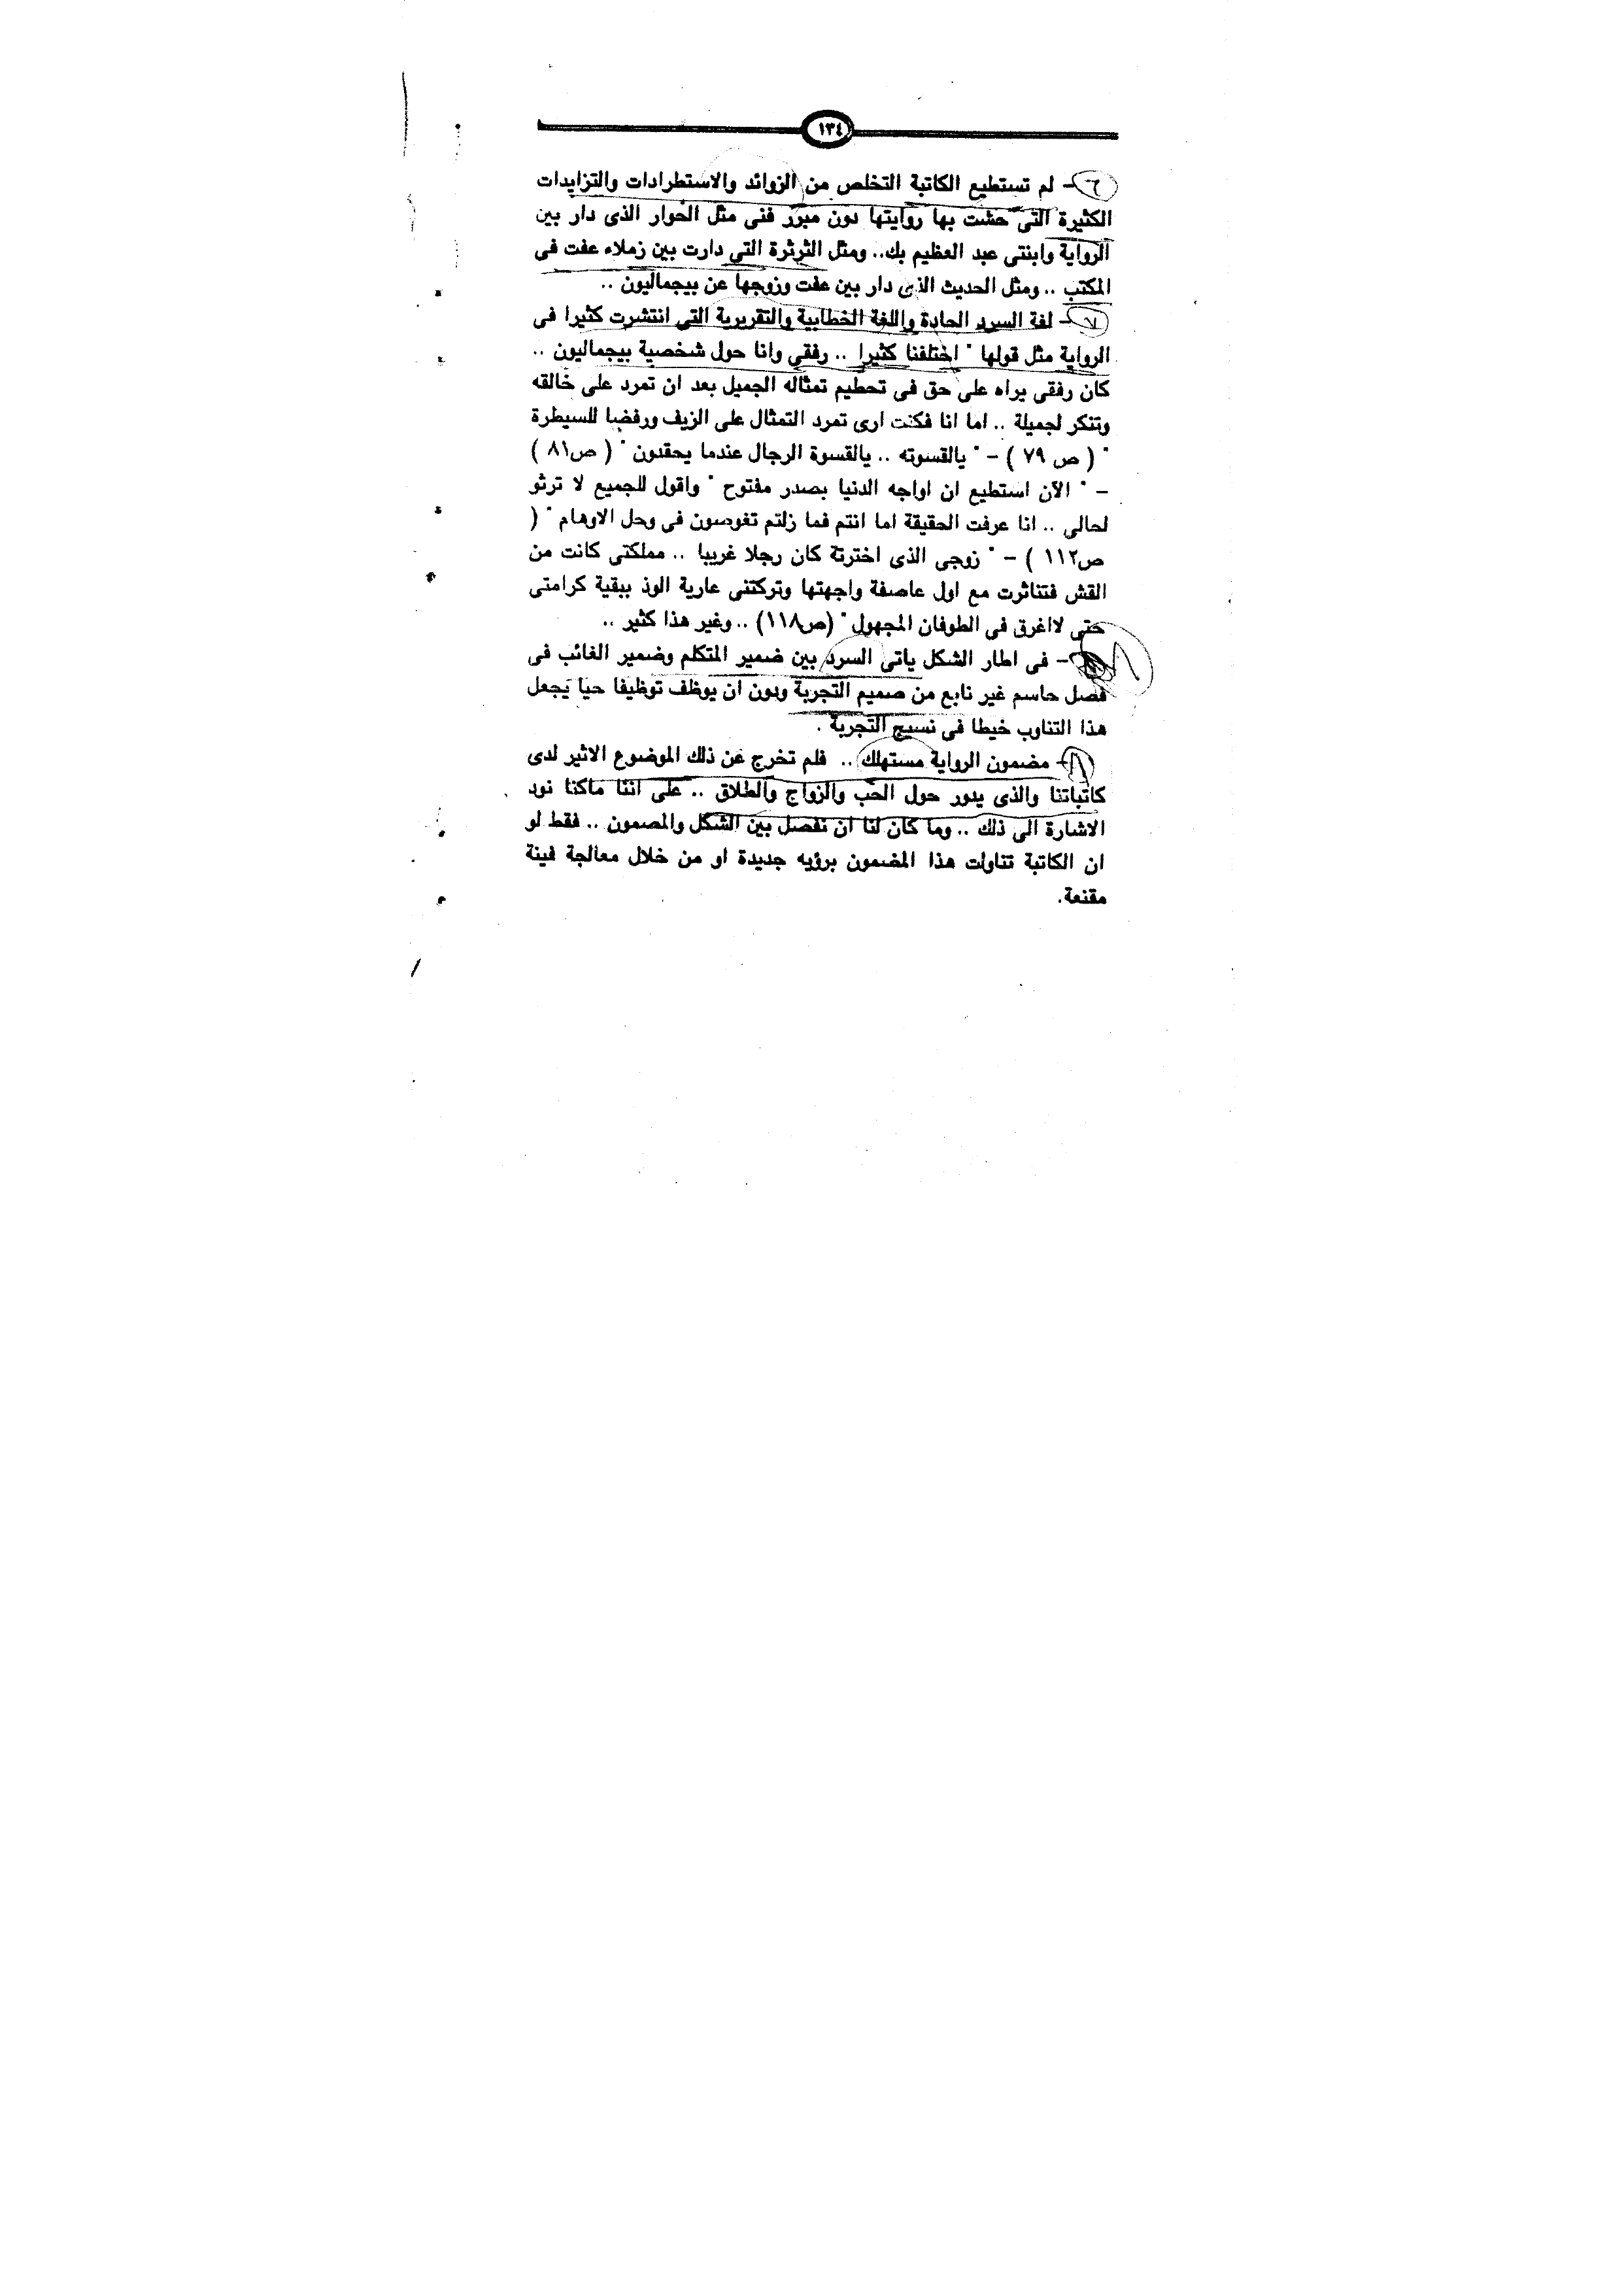 ١٣٤
٦- لم تستطيع الكاتبة التخلص من الزوائد والاستطرادات والتزايدات
الكثيرة التى حشت بها روايتها دون مبرر فنى مثل الحوار الذى دار بين
الرواية وابنتى عبد العظيم بك.. ومثل الثرثرة التى دارت بين زملاء عفت فى
المكتب .. ومثل الحديث الذى دار بين عفت وزوجها عن بيجماليون ..
٧- لغة السرد الحادة واللغة الخطابية والتقريرية التى انتشرت كثيرا فى
الرواية مثل قولها " اختلفنا كثيرا .. رفقى وانا حول شخصية بيجماليون ..
كان رفقى يراه على حق فى تحطيم تمثاله الجميل بعد ان تمرد على خالقه
وتنكر لجميلة .. اما انا فكنت ارى تمرد التمثال على الزيف ورفضا للسيطرة
" ( ص ٧٩ ) - " يالقسوته .. يالقسوة الرجال عندما يحقدون " ( ص٨١ )
- " الآن استطيع ان اواجه الدنيا بصدر مفتوح " واقول للجميع لا ترثو
لحالى .. انا عرفت الحقيقة اما انتم فما زلتم تغوصون فى وحل الاوهام " (
ص١١٢ ) - " زوجى الذى اخترتة كان رجلا غريبا .. مملكتى كانت من
القش فتناثرت مع اول عاصفة واجهتها وتركتنى عارية الوذ ببقية كرامتى
حتى لااغرق فى الطوفان المجهول " (ص١١٨) .. وغير هذا كثير ..
٨- فى اطار الشكل ياتى السرد بين ضمير المتكلم وضمير الغائب فى
فصل حاسم غير نابع من صميم التجربة وبون ان يوظف توظيفا حيا يجعل
هذا التناوب خيطا فى نسيج التجربة .
- مضمون الرواية مستهلك .. فلم تخرج عن ذلك الموضوع الاثير لدى
كاتباتنا والذى يدور حول الحب والزواج والطلاق .. على اننا ماكنا نود
الاشارة الى ذلك .. وما كان لنا ان نفصل بين الشكل والمضمون .. فقط لو
ان الكاتبة تناولت هذا المضمون برؤيه جديدة او من خلال معالجة فينة
مقنعة.